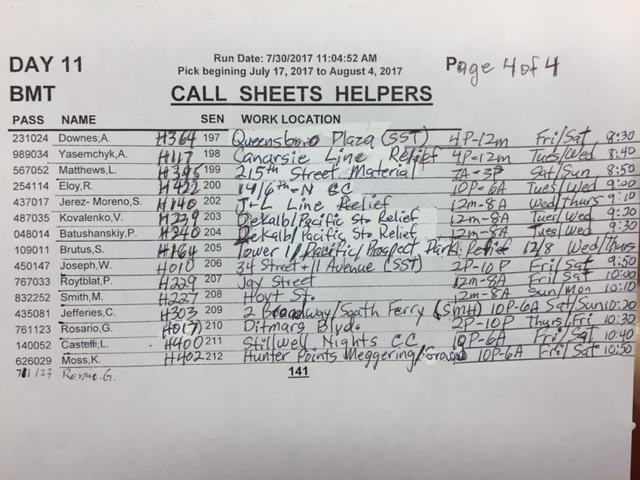 DAY 11 Run Date: 7/30/2017 11:04:52 AM Page 4 of 4
Pick begining July 17, 2017 to August 4, 2017
BMT CALL SHEETS HELPERS
PASS NAME SEN WORK LOCATION
231024 Downes,A. H364 197 Queensboro Plaza (SST) 4P-12m Fri/Sat 8:30
989034 Yasemchyk,A. H117 198 Canarsie Line Relief 4P-12m Tues/Wed 8:40
567052 Matthews,L. H395 199 215th Street Material 7A-3P Sat/Sun 8:50
254114 Eloy,R. H422 200 14/6th-N CC 10P-6A Tues/Wed 9:00
437017 Jerez- Moreno,S. H140 202 J+L Line Relief 12m-8A Wed/Thurs 9:10
487035 Kovalenko,V. H239 203 Dekalb/Pacific Sto Relief 12m-8A Tues/Wed 9:20
048014 Batushanskiy,P. H240 204 Dekalb/Pacific Sto Relief 12m-8A Tues/Wed 9:30
109011 Brutus,S. H164 205 Tower 1/Pacific/Prospect Park Relief 12/8 Wed/Thurs
450147 Joseph,W. H010 206 34 Street+11 Avenue (SST) 2P-10P Fri/Sat 9:50
767033 Roytblat,P. H229 207 Jay Street 12m-8A Fri/Sat 10:00
832252 Smith,M. H227 208 Hoyt St. 12m-8A Sun/Mon 10:10
435081 Jefferies,C. H303 209 2 Broadway/South Ferry (SMH) 10P-6A Sat/Sun 10:20
761123 Rosario,G. H017 210 Ditmars Blvd. 2P-10P Thurs/Fri 10:30
140052 Castelli,L. H400 211 Stillwell Nights C.C. 10P-6A Fri/Sat 10:40
626029 Moss,K. H402 212 Hunter Points Meggering/Ground 10P-6A Fri/Sat 10:50
141